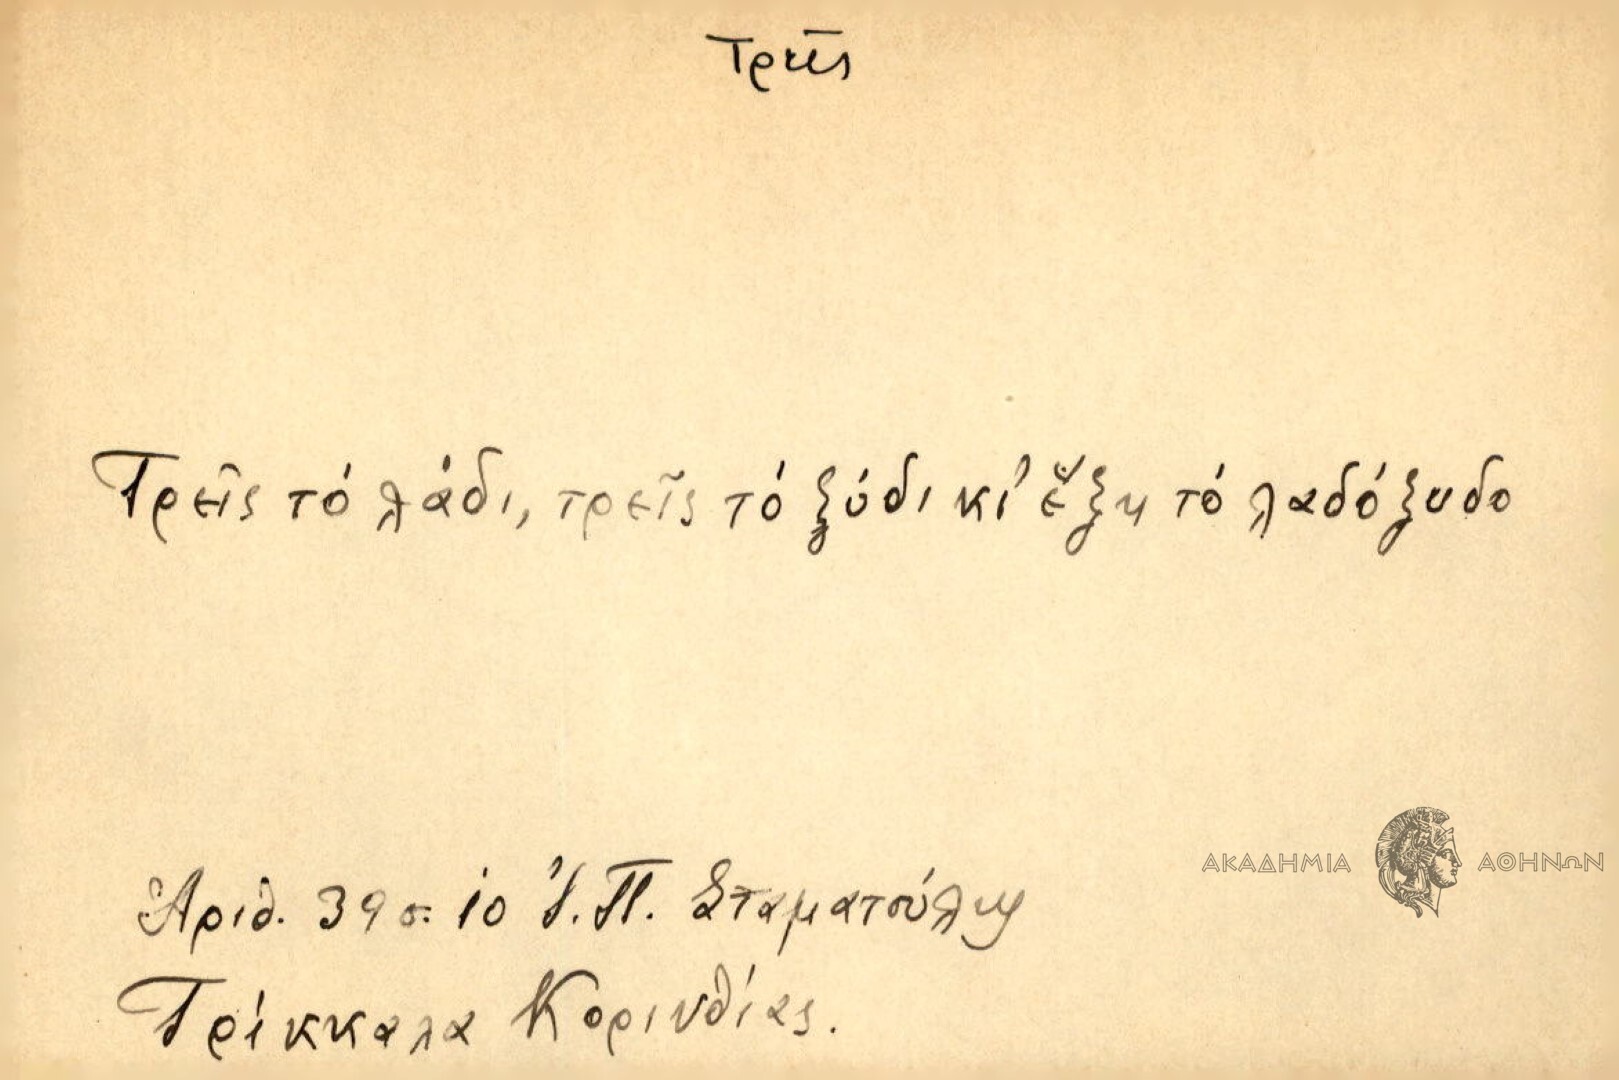 Τρεῖς
Τρεῖς τό λάδι, τρεῖς τό ξύδι κι' ἕξη τό λαδόξυδο
ΑΚΑΔΗΜΙΑ ΑΘΗΝΩΝ
Ἀριθ. 39 σ. 10 Ἰ. Π. Σταματούλη
Τρίκκαλα Κορινθίας.